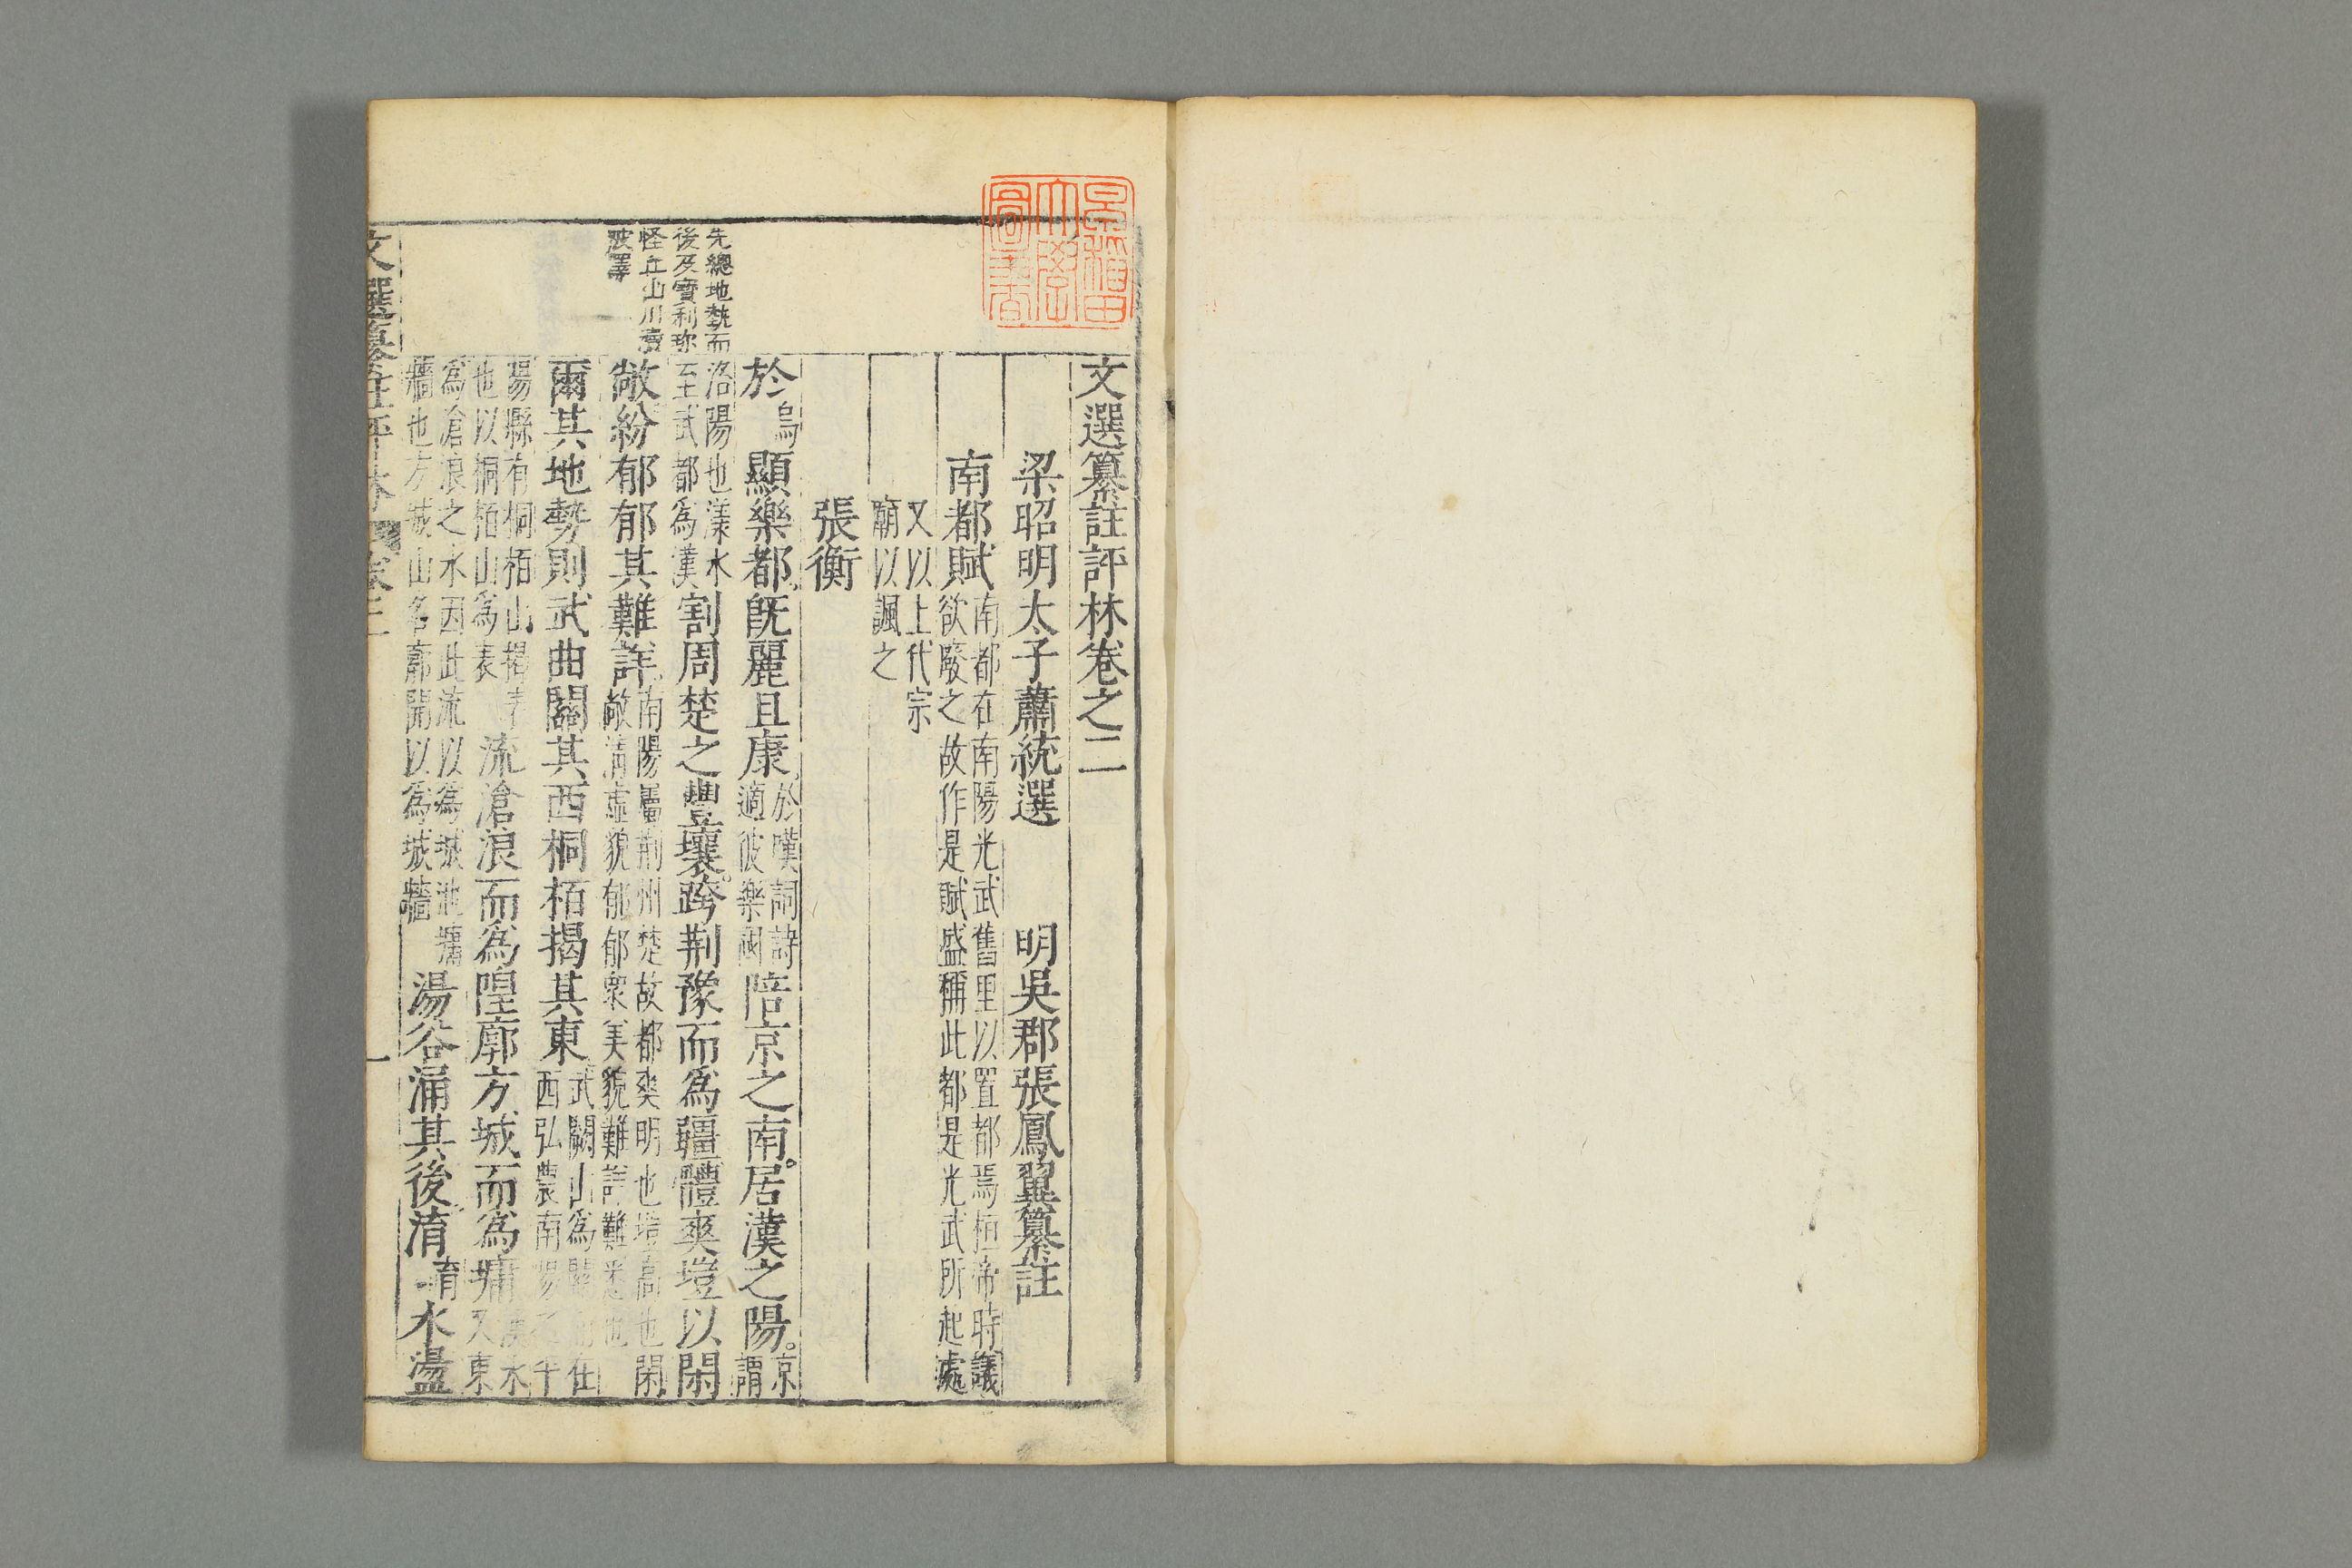 早稲田
大學
圖書
文選纂註評林卷之二
梁昭明太子蕭統選　明吳郡張鳳翼纂註
南都賦
南都在南陽光武舊里以置都焉桓帝時議
欲廢之故作是賦盛稱此都是光武所起處
又以上代宗
廟以諷之
張衡
先總地勢而
後及寶利珍
怪丘山川瀆
陂澤
於烏顯樂都旣麗且康
於嘆詞詩
適彼樂國
陪京之南。居漢之陽。
京
謂
洛陽也漾水
至武都為漢
割周楚之豐壤。跨荆豫而爲疆體爽塏以閑
敞紛郁郁其難詳
南陽屬荆州楚故都爽明也塏高也閑
敞清虛貌郁郁衆美貌難詳難悉也
爾其地勢則武曲關其西桐栢揭其東
武闕山爲關而在
西弘農南陽
平
陽縣有桐栢山揭
也以桐栢山為表
流滄浪而爲隍廓方城而爲墉
漢水
又東
為滄浪之水因此流以為城池墉
牆也方城山名廓開以為城牆
湯谷涌其後淯育水盪
文選纂註評林
一